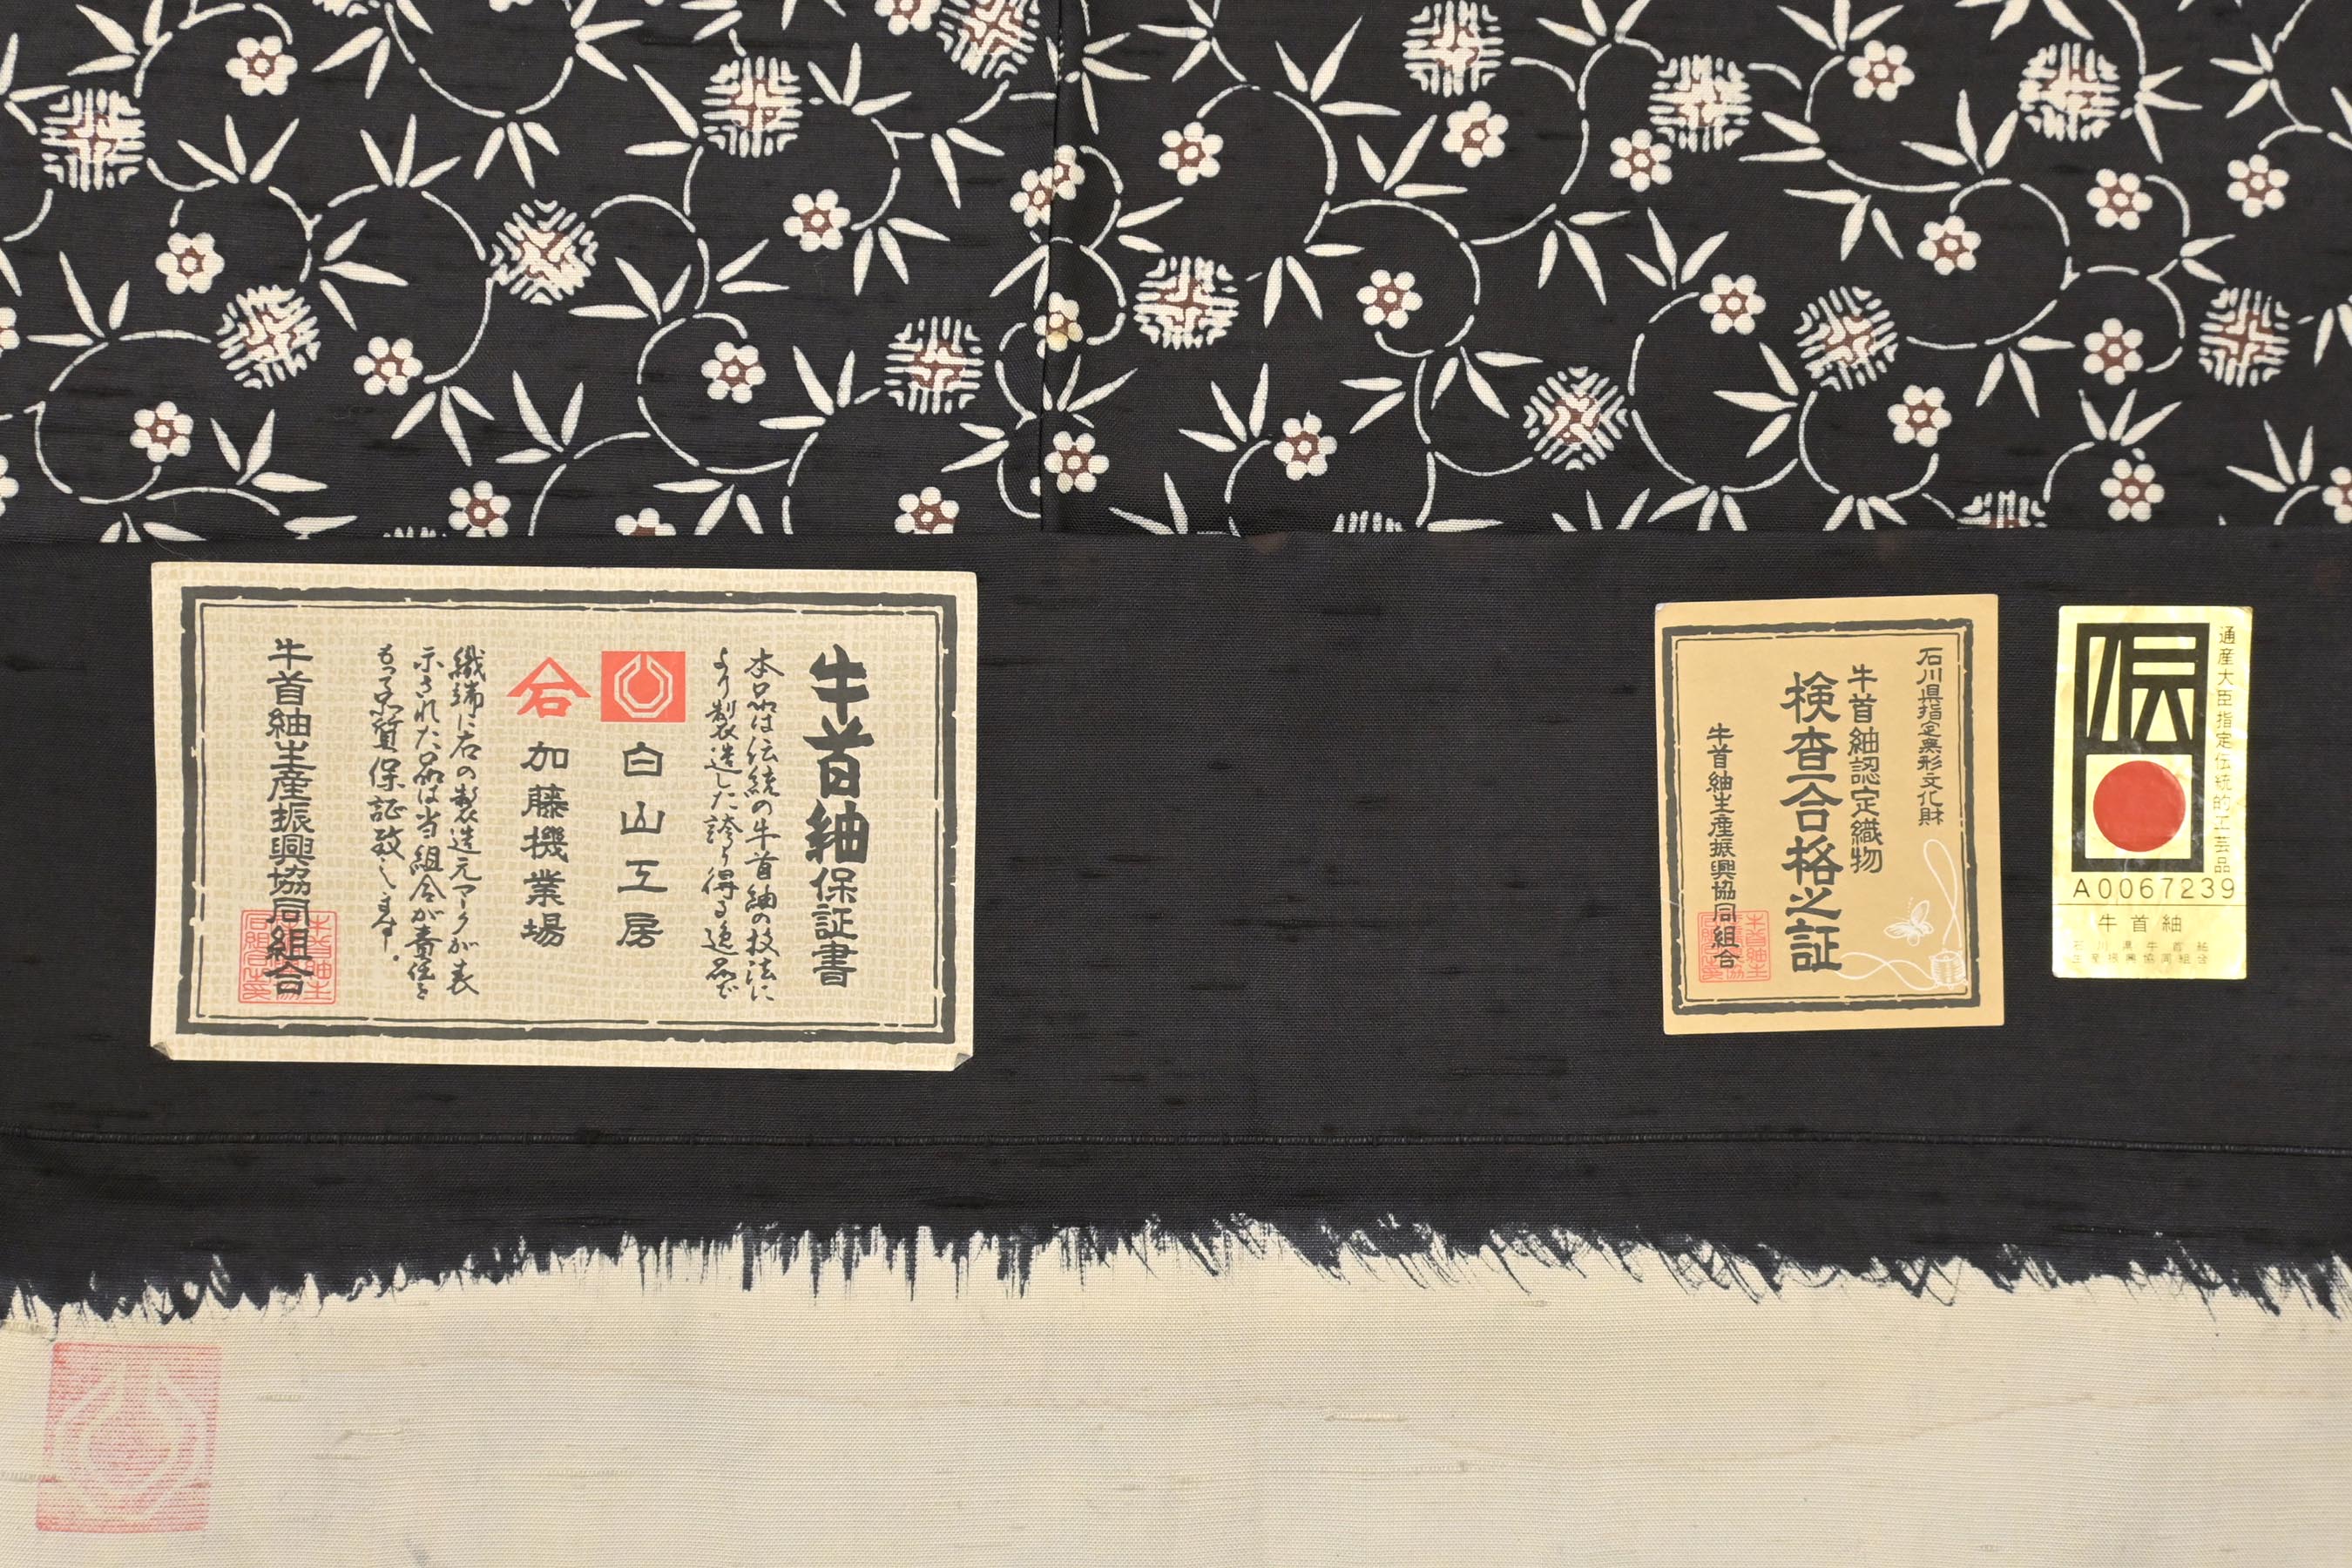 牛首紬保証書
本品は伝統の牛首紬の技法に
より製造した誇り得る逸品で
白山工房
石
加藤機業場
織端に右の製造元マークが表
示された品は当組合が責任を
もって品質保証致します。
牛首紬生産振興協同組合
石川県指定無形文化財
牛首紬認定織物
検査合格之証
牛首紬生産振興協同組合
伝
通産大臣指定伝統的工芸品
A0067239
牛首紬
石川県牛首紬
生産振興協同組合